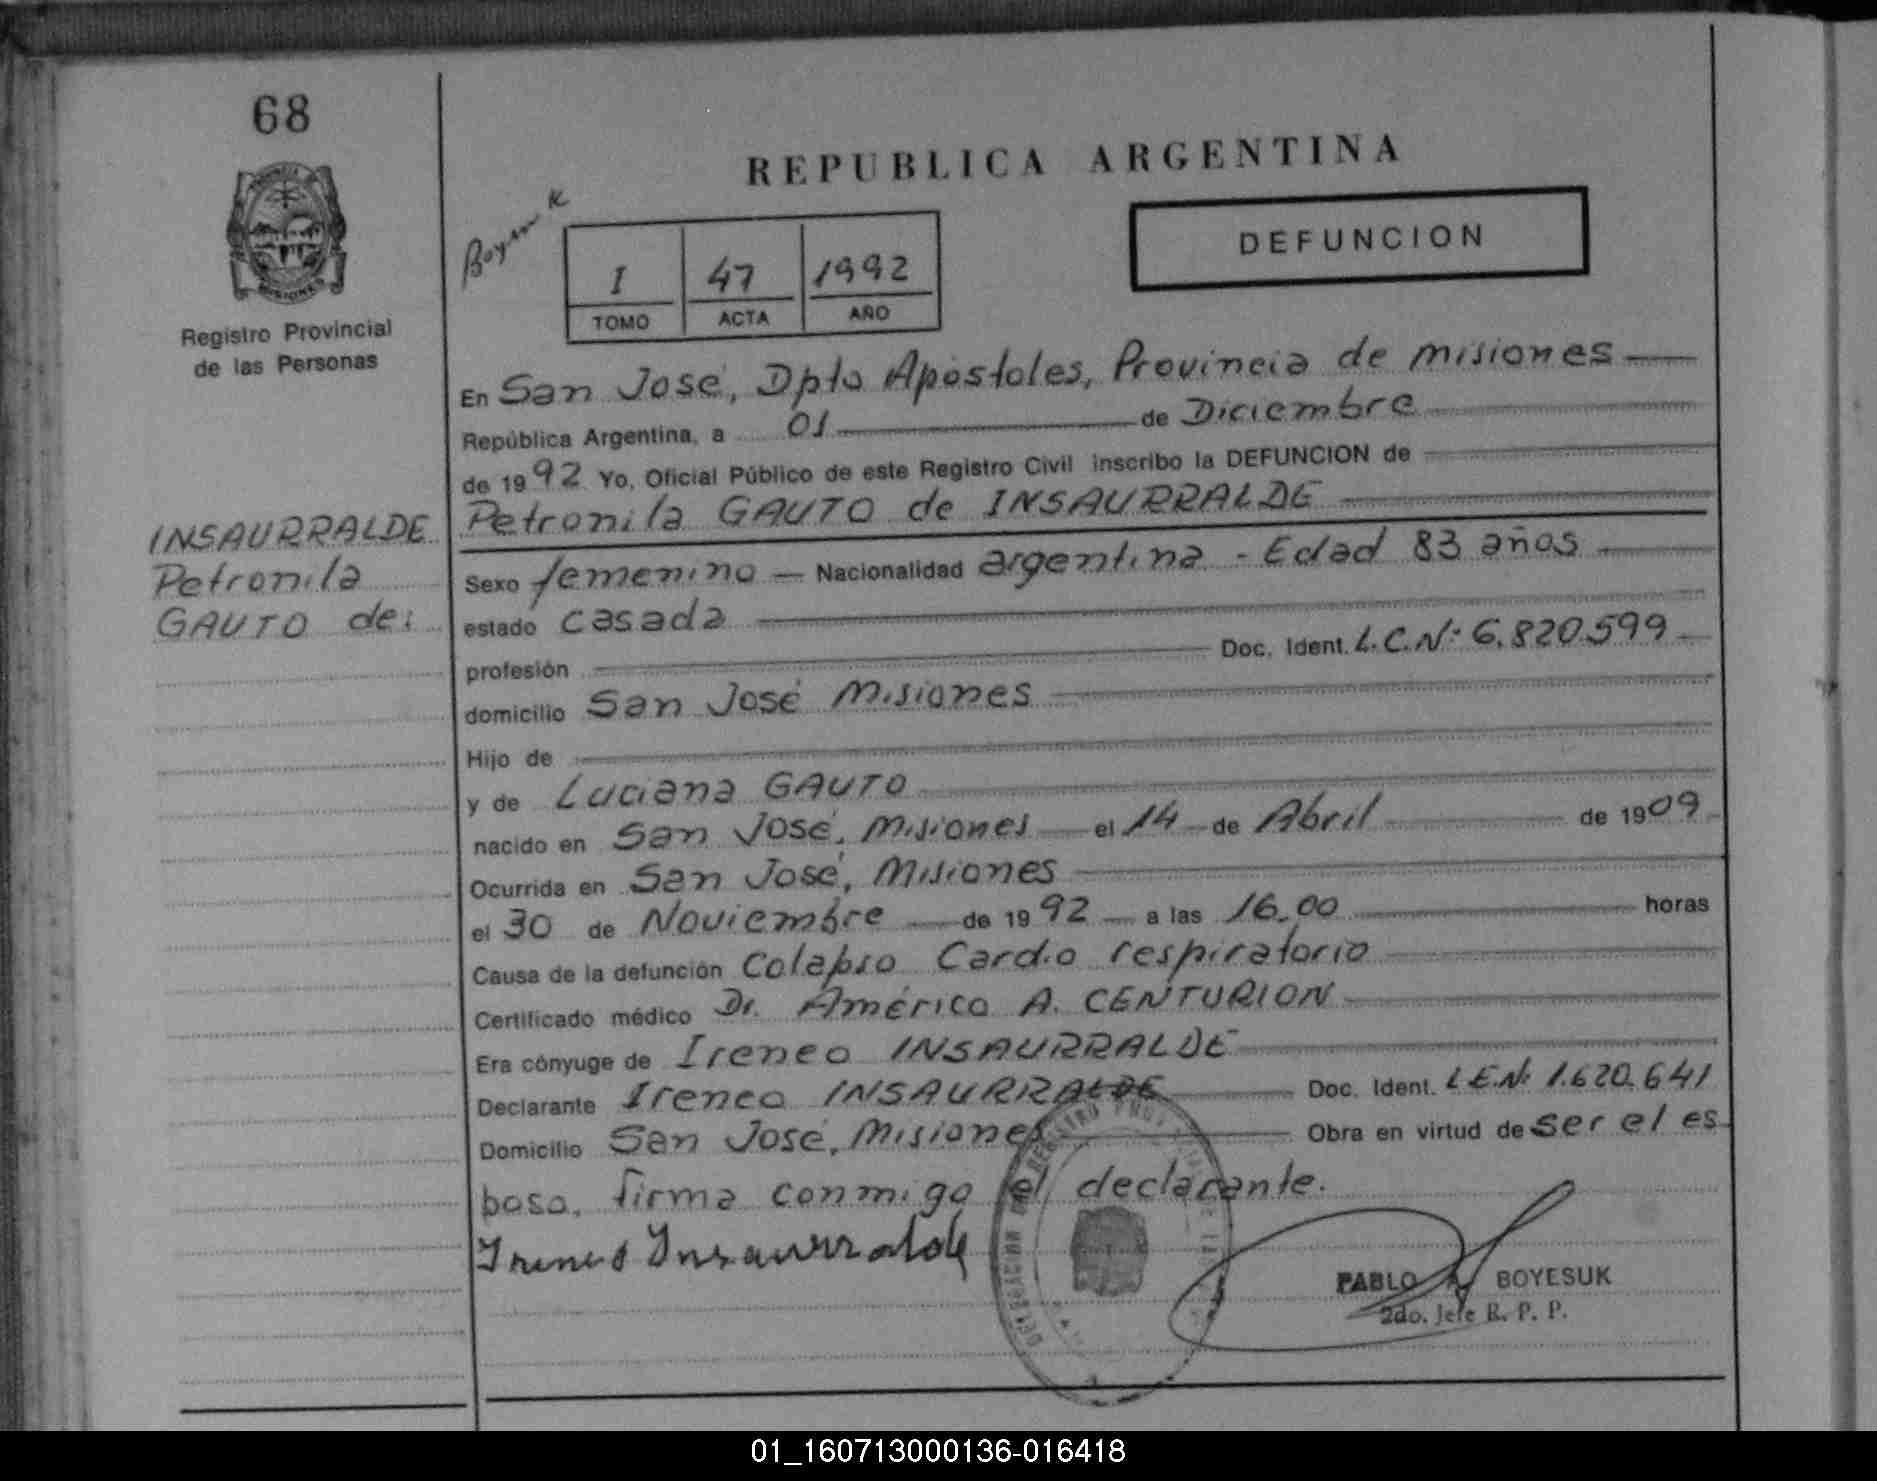 68
Registro Provincial
de las Personas
INSAURRALDE
Petronila
GAUTO de:
REPUBLICA ARGENTINA
DEFUNCION
I 47 1992
TOMO ACTA AÑO
En San José, Dpto Apóstoles, Provincia de Misiones
República Argentina, a 01 de Diciembre
de 1992 Yo, Oficial Público de este Registro Civil inscribo la DEFUNCION de
Petronila GAUTO de INSAURRALDE
Sexo femenino - Nacionalidad argentina - Edad 83 años
estado casada
profesión Doc. Ident. L.C.Nº 6.820.599
domicilio San José Misiones
Hijo de
y de Luciana GAUTO
nacido en San José, Misiones el 14 de Abril de 1909
Ocurrida en San José, Misiones
el 30 de Noviembre de 1992 a las 16.00 horas
Causa de la defunción Colapso Cardio respiratorio
Certificado médico Dr. Américo A. CENTURION
Era cónyuge de Ireneo INSAURRALDE
Declarante Ireneo INSAURRALDE Doc. Ident. L.E.Nº 1.620.641
Domicilio San José, Misiones Obra en virtud de ser el es
poso, firma conmigo el declarante.
Ireneo Insaurralde
PABLO BOYESUK
2do. Jefe R. P. P.
01_160713000136-016418